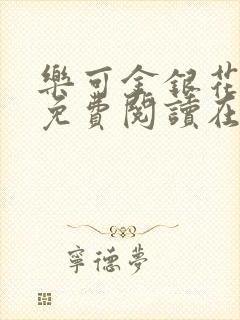 樂可金銀花
免費閱讀在
寧德夢